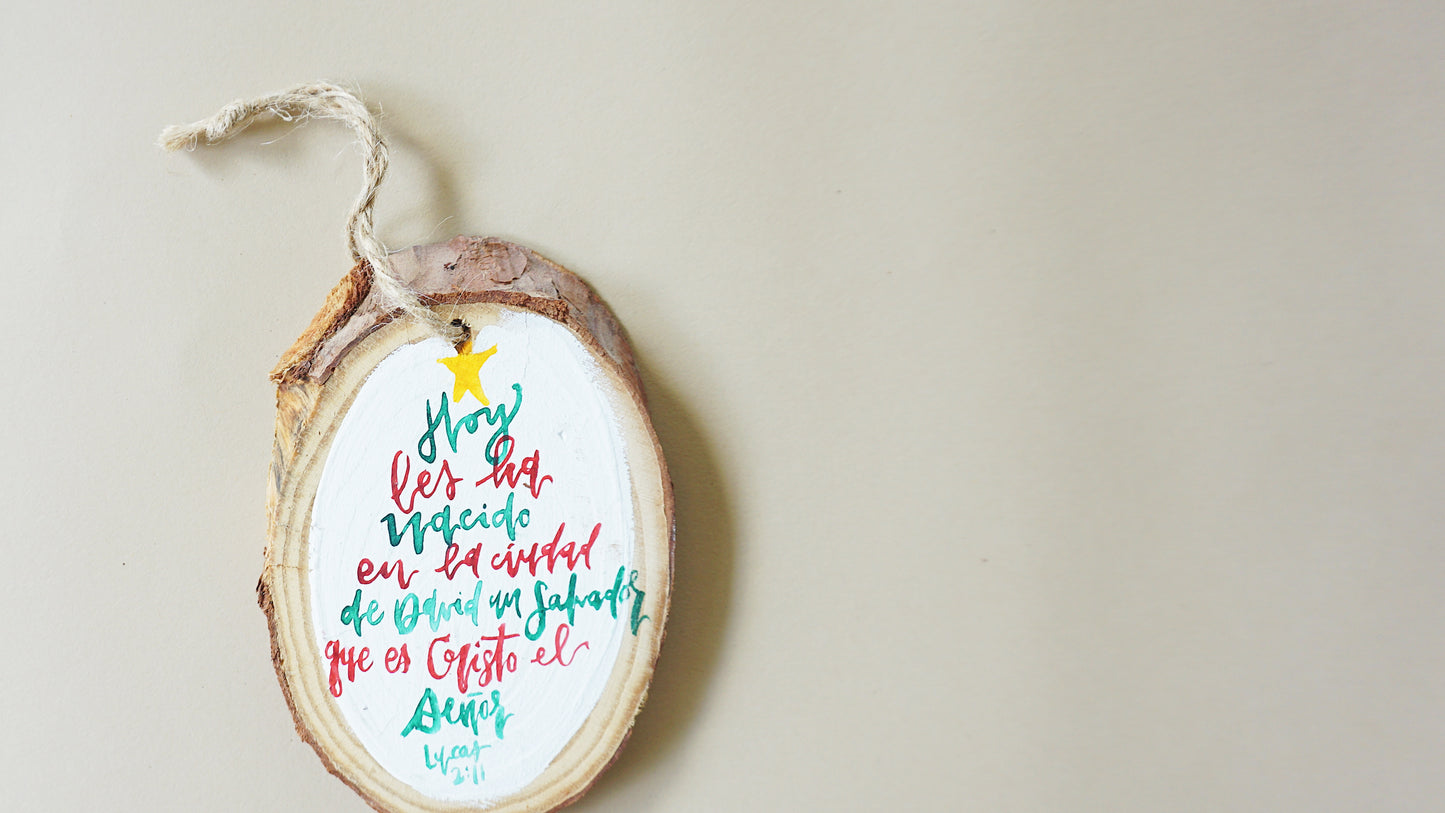 Hoy
les ha
nacido
en la ciudad
de David un Salvador
que es Cristo el
Señor
Lucas
2:11